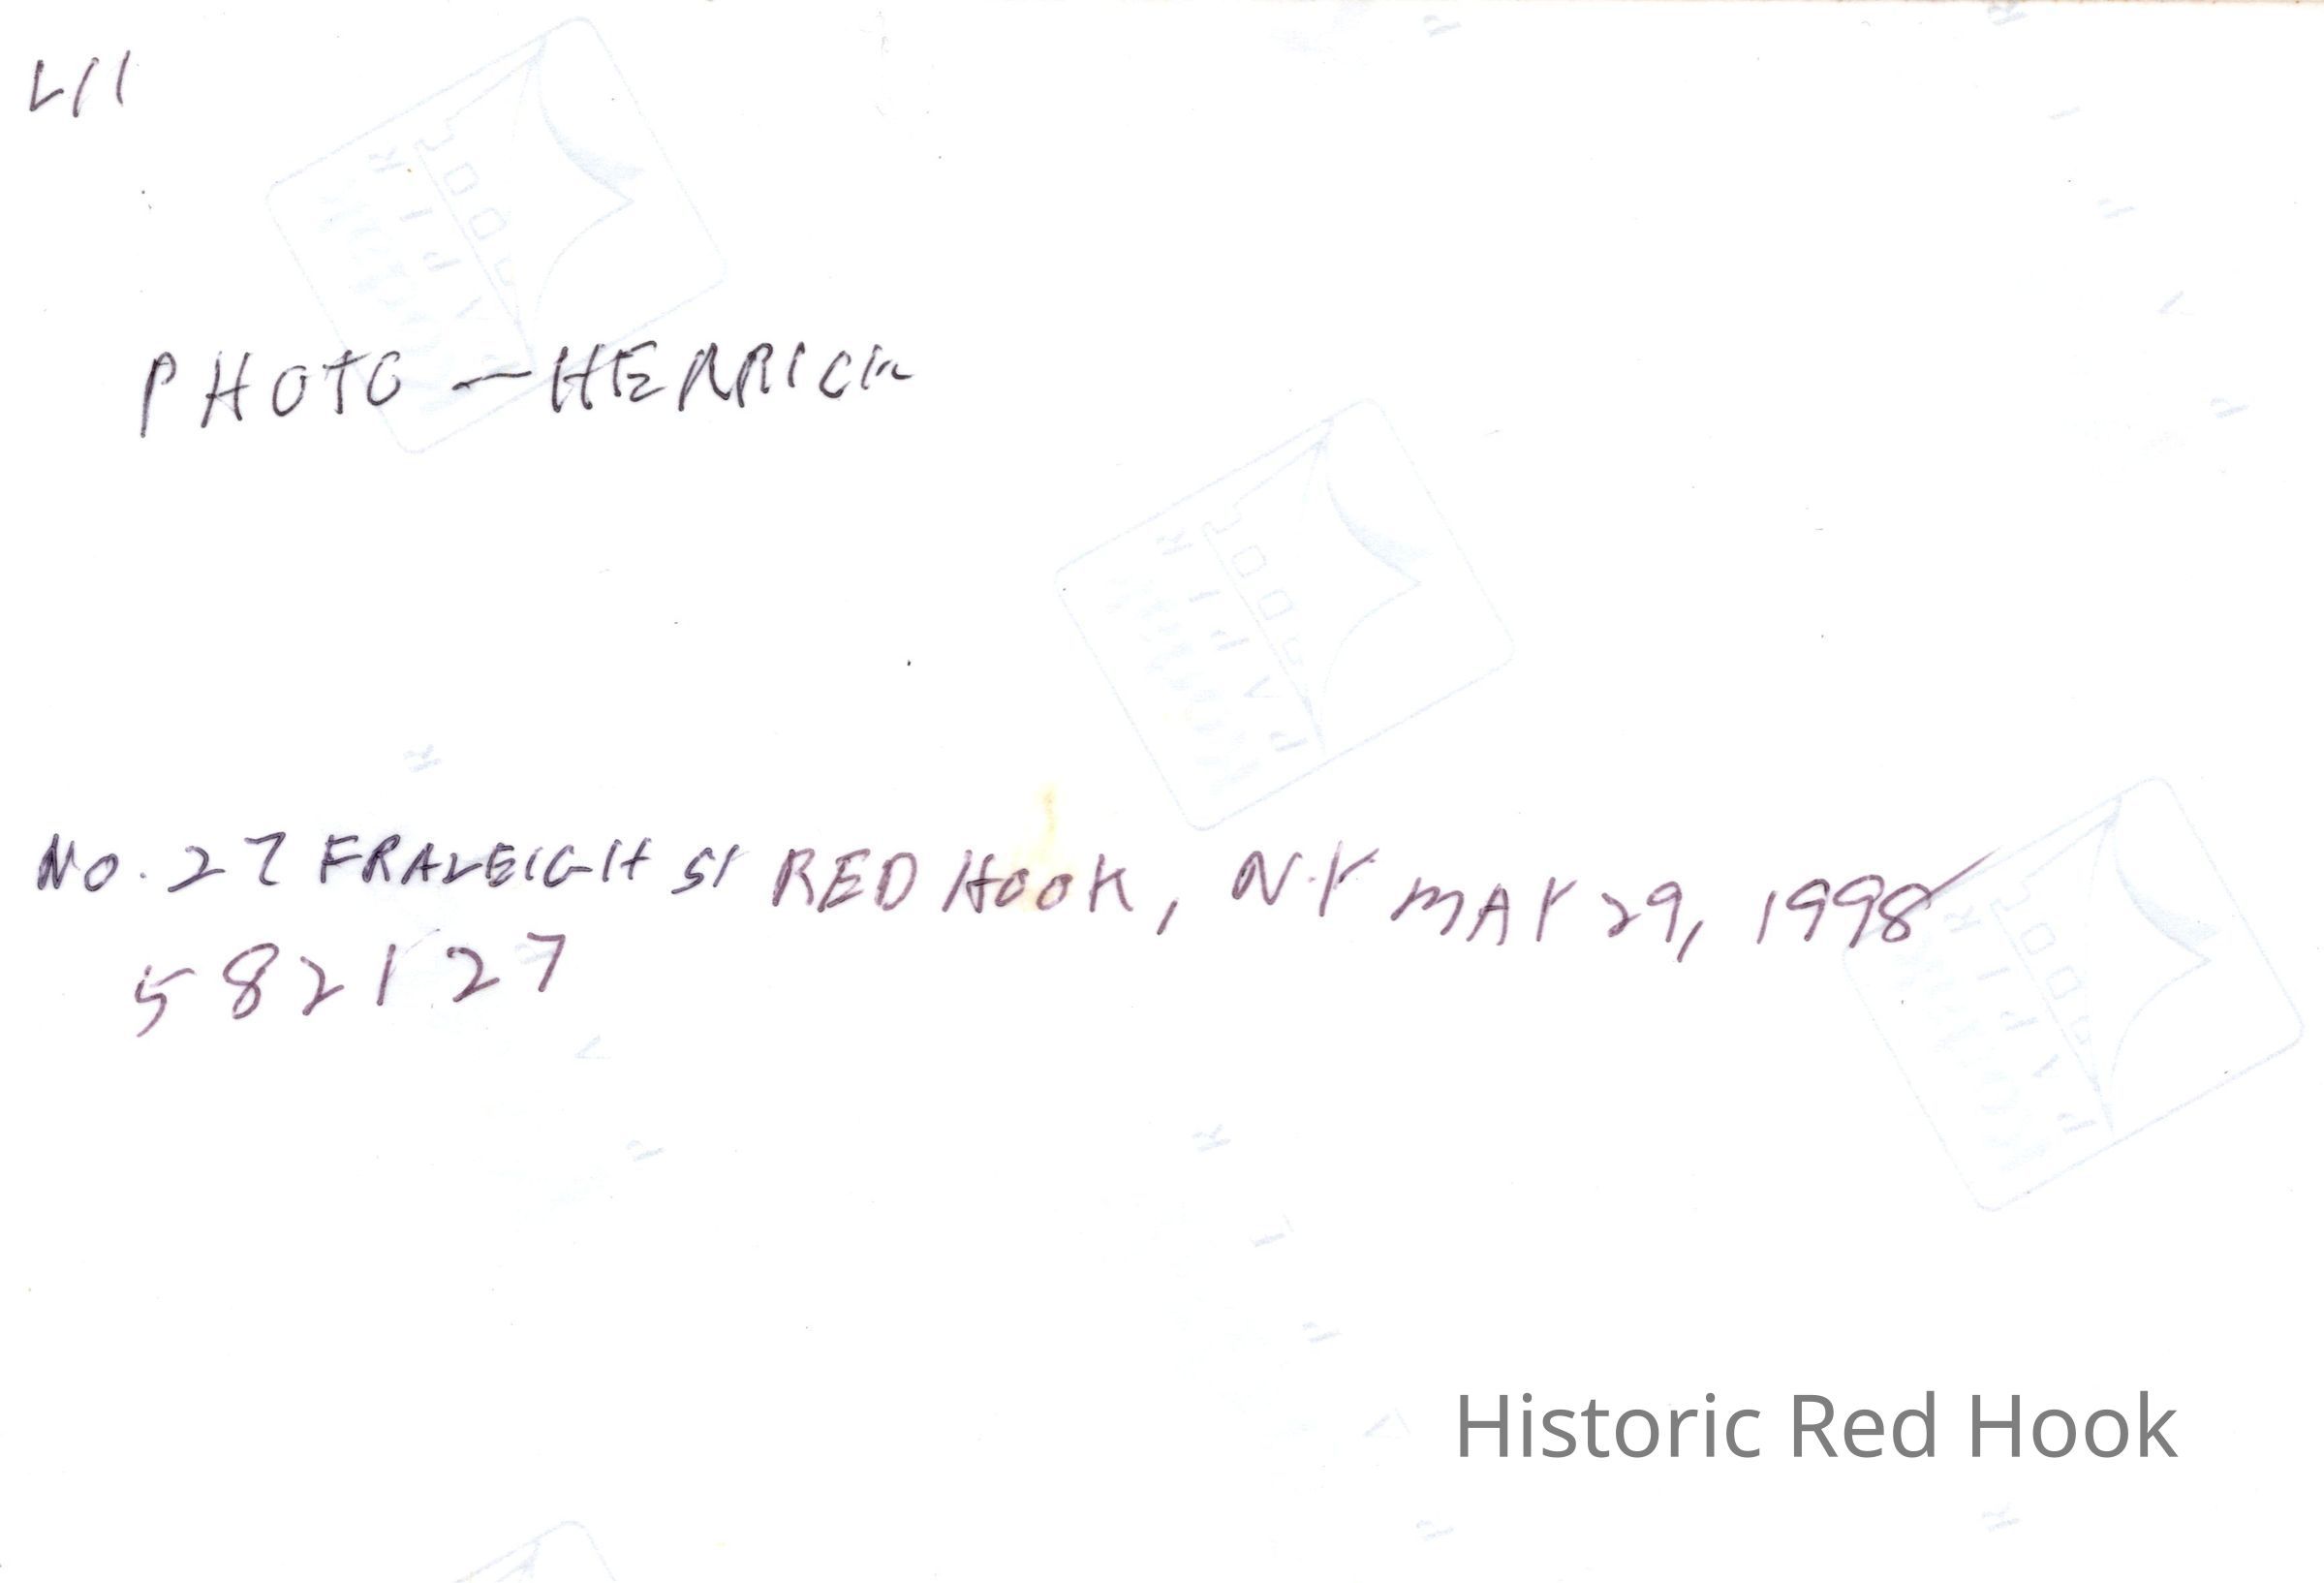 L11
PHOTO — HERRICK
NO. 27 FRALEIGH ST RED HOOK, N.Y MAY 29, 1998
582127
Historic Red Hook